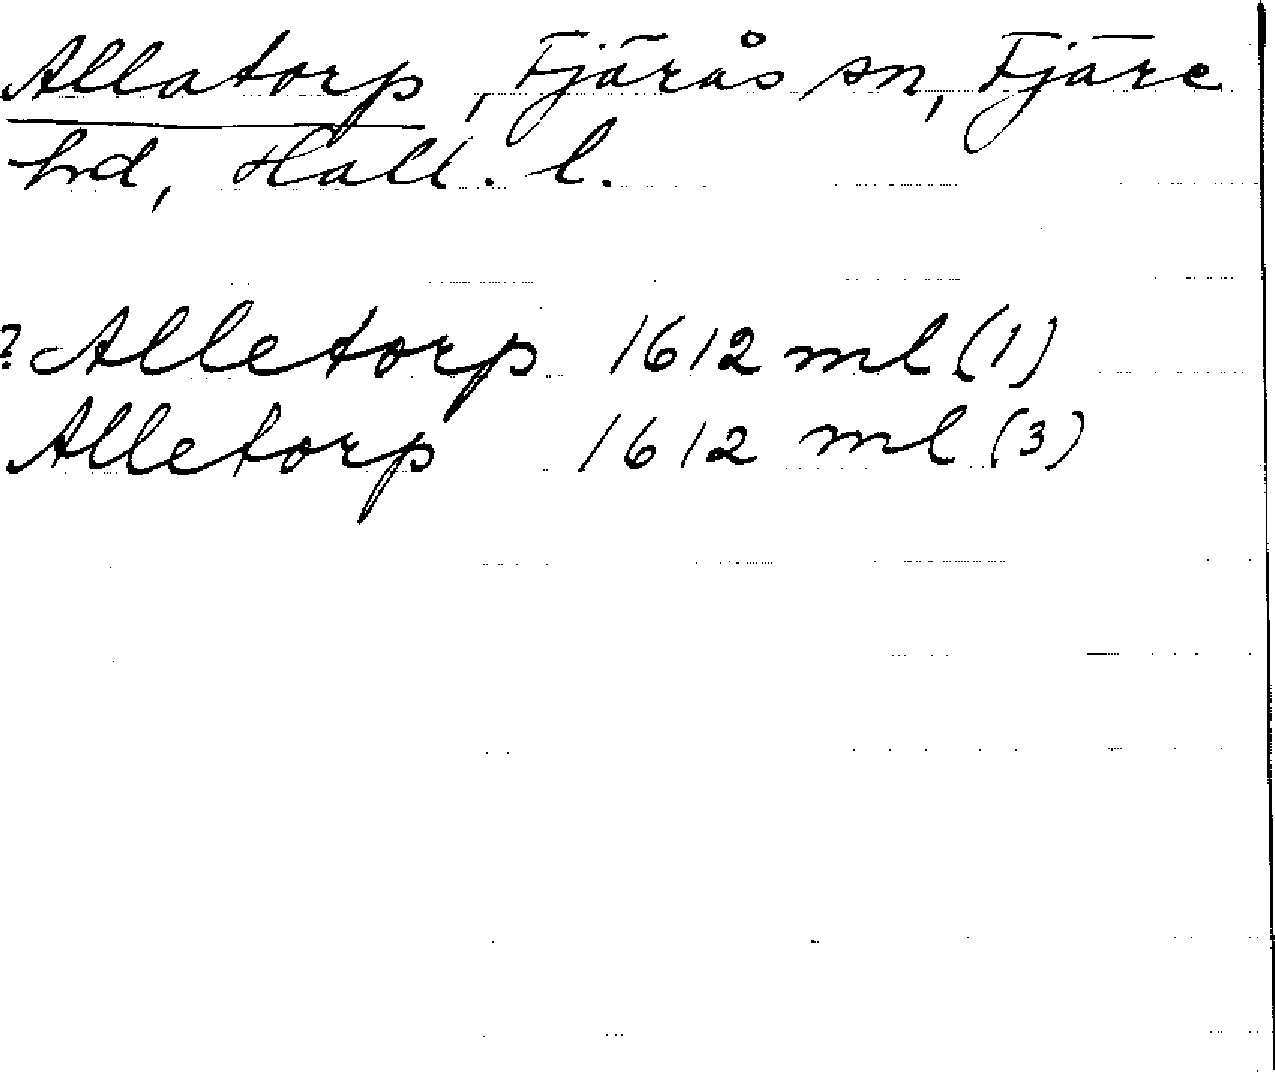 Allatorp, Fjärås sn, Fjäre
hd, Hall. l.
? Alletorp 1612 ml (1)
Alletorp 1612 ml (3)